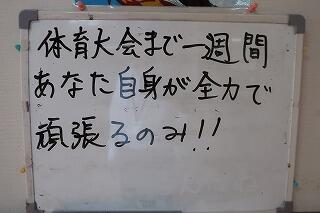 体育大会まで一週間
あなた自身が全力で
頑張るのみ!!